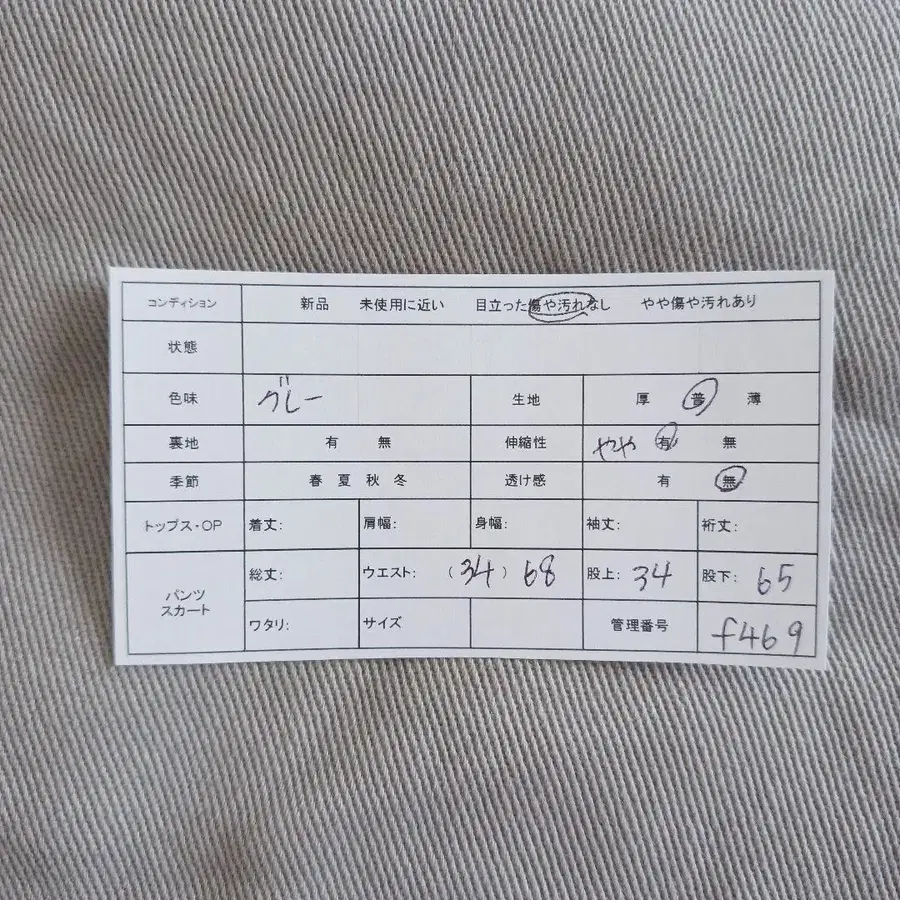 コンディション 新品 未使用に近い 目立った傷や汚れなし やや傷や汚れあり
状態
色味 グレー 生地 厚 普 薄
裏地 有 無 伸縮性 やや 有 無
季節 春 夏 秋 冬 透け感 有 無
トップス・OP 着丈: 肩幅: 身幅: 袖丈: 裄丈:
パンツ スカート 総丈: ウエスト: (34) 68 股上: 34 股下: 65
ワタリ: サイズ 管理番号 f469